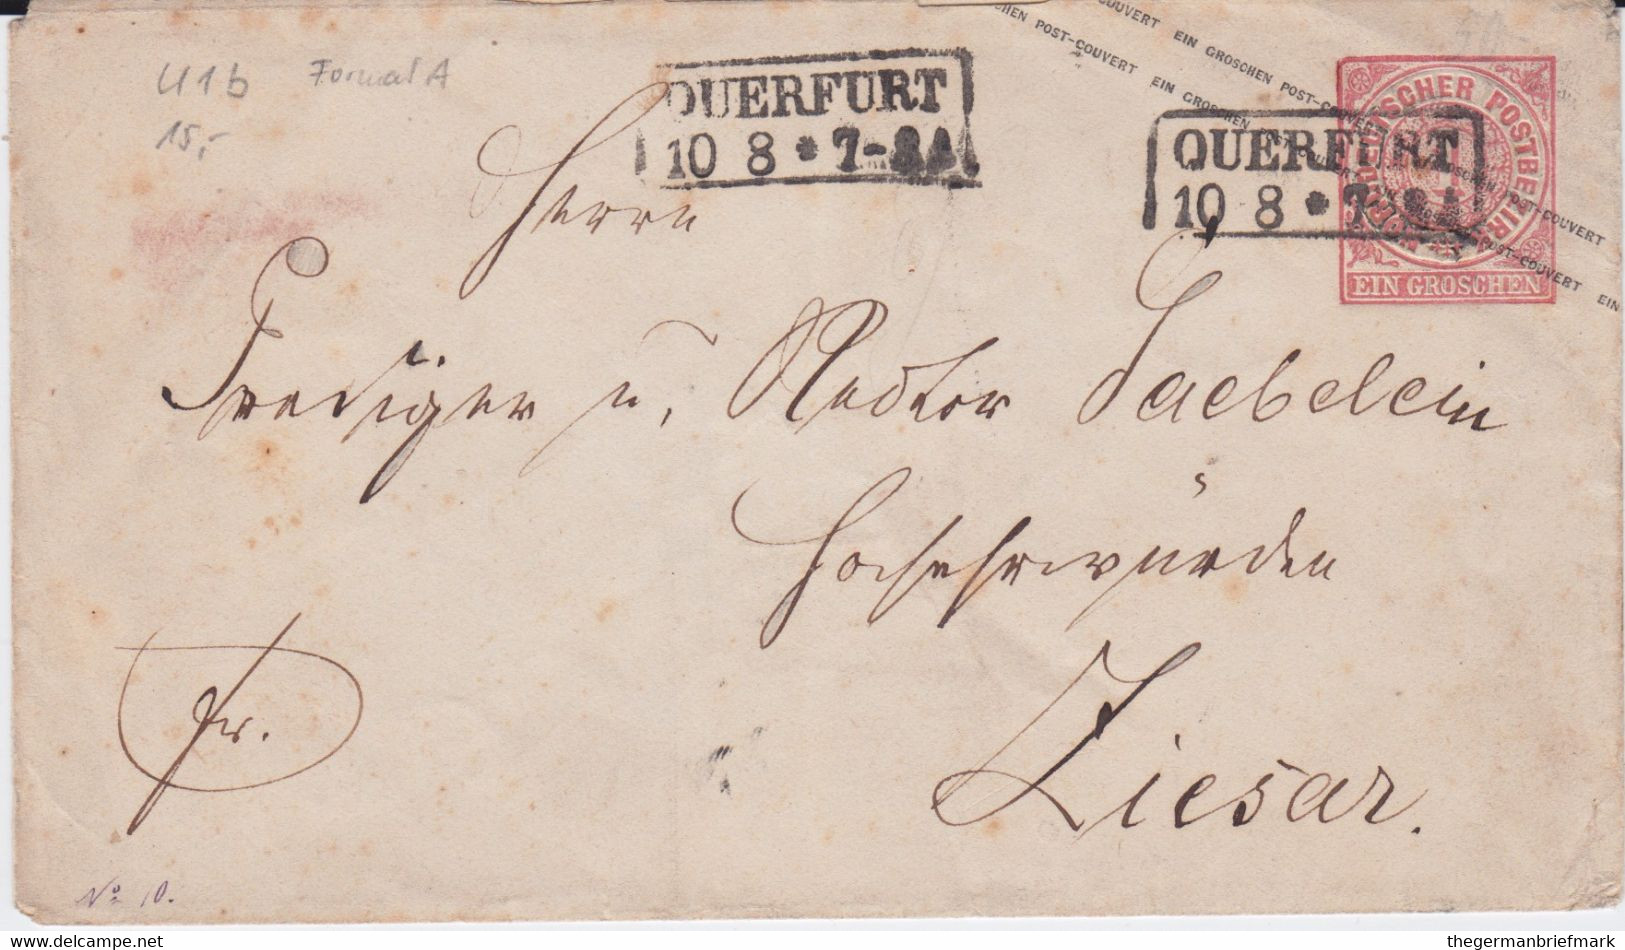 U1b Format A
15,-
QUERFURT
10 8 * 7-8A
QUERFURT
10 8 * 7-8A
POST-COUVERT EIN GROSCHEN POST-COUVERT
POST-COUVERT EIN GROSCHEN POST-COUVERT EIN GROSCHEN POST-COUVERT EIN
NORDDEUTSCHER POSTBEZIRK
1
EIN GROSCHEN
Herrn
Prediger u. Rector Saebelein
Hochehrwürden
fr.
Ziesar.
No 10.
thegermanbriefmark